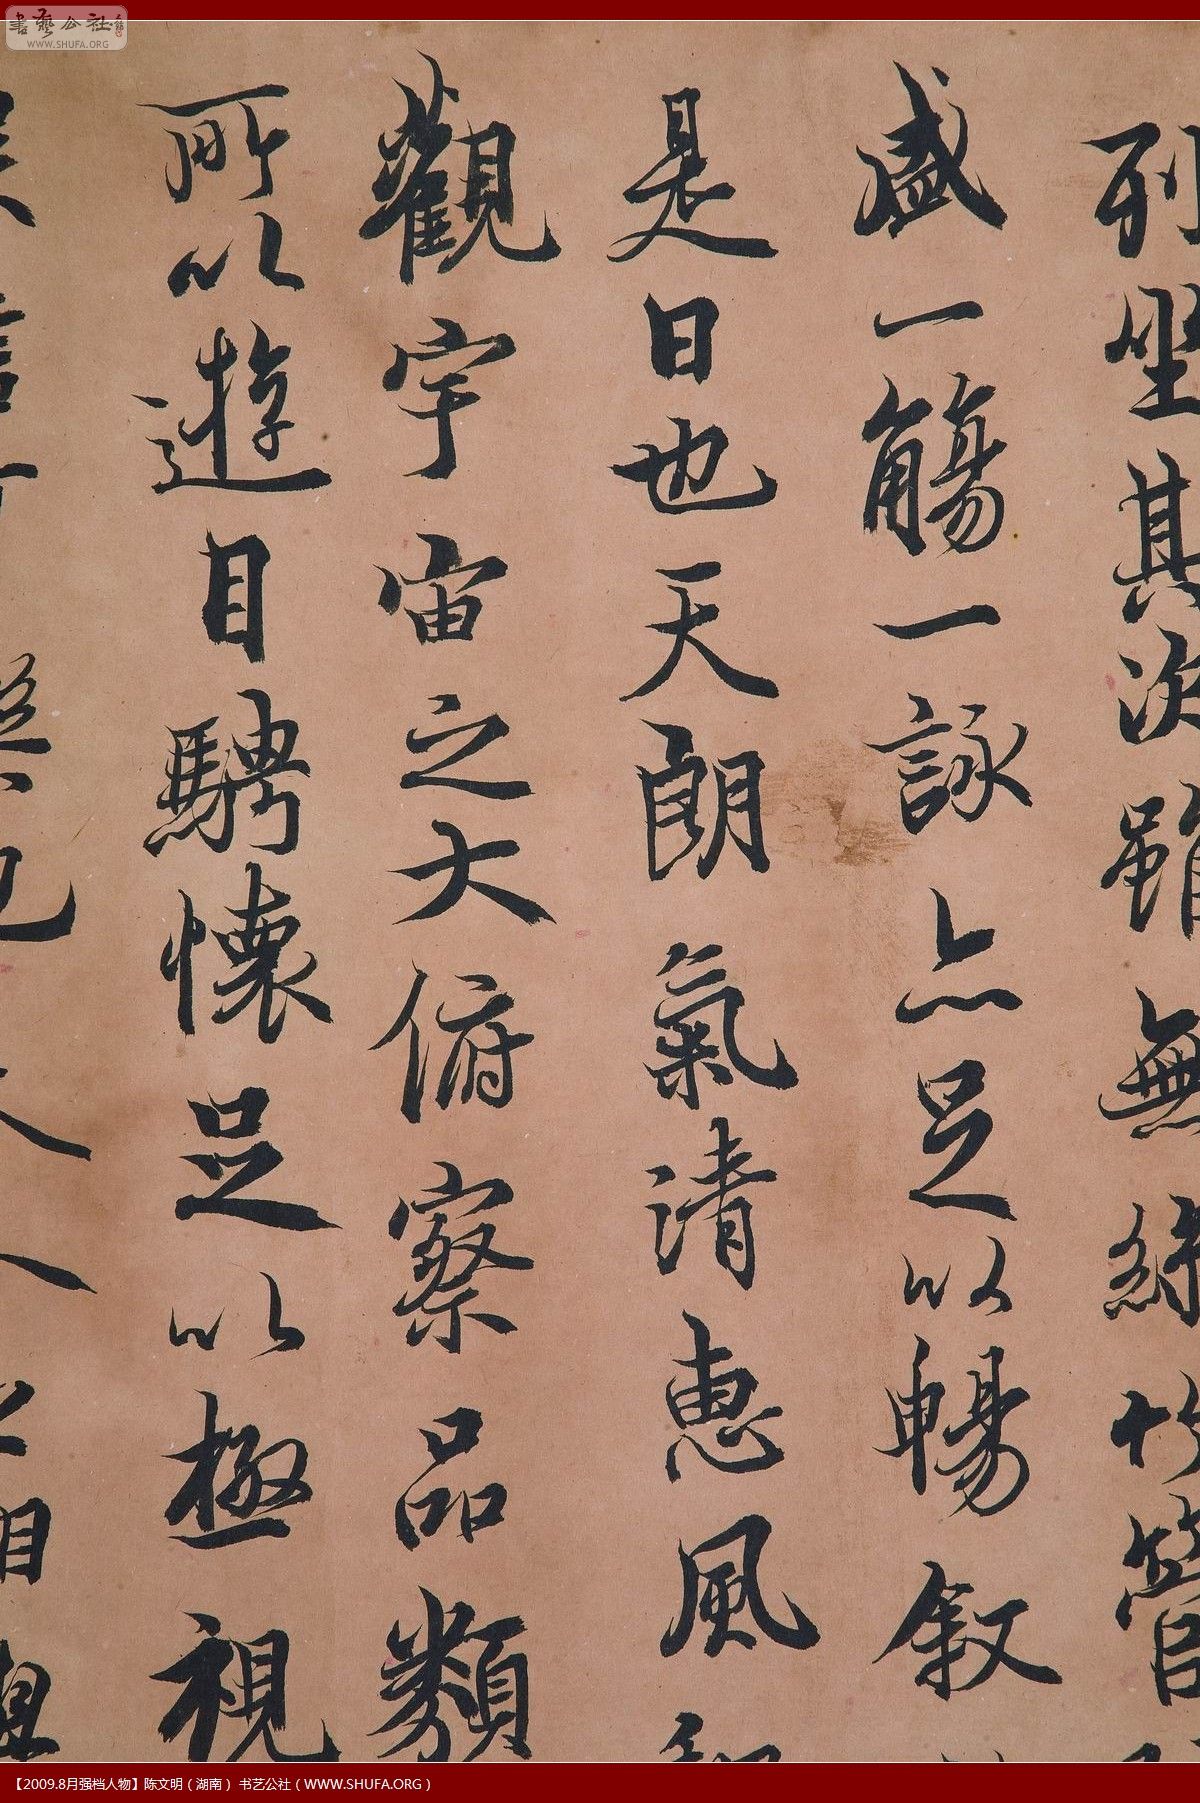 书艺公社
WWW.SHUFA.ORG
列坐其次雖無絲竹管
盛一觴一詠亦足以暢叙
是日也天朗氣清惠風和
觀宇宙之大俯察品類
所以遊目騁懷足以極視
【2009.8月强档人物】陈文明（湖南） 书艺公社（WWW.SHUFA.ORG）